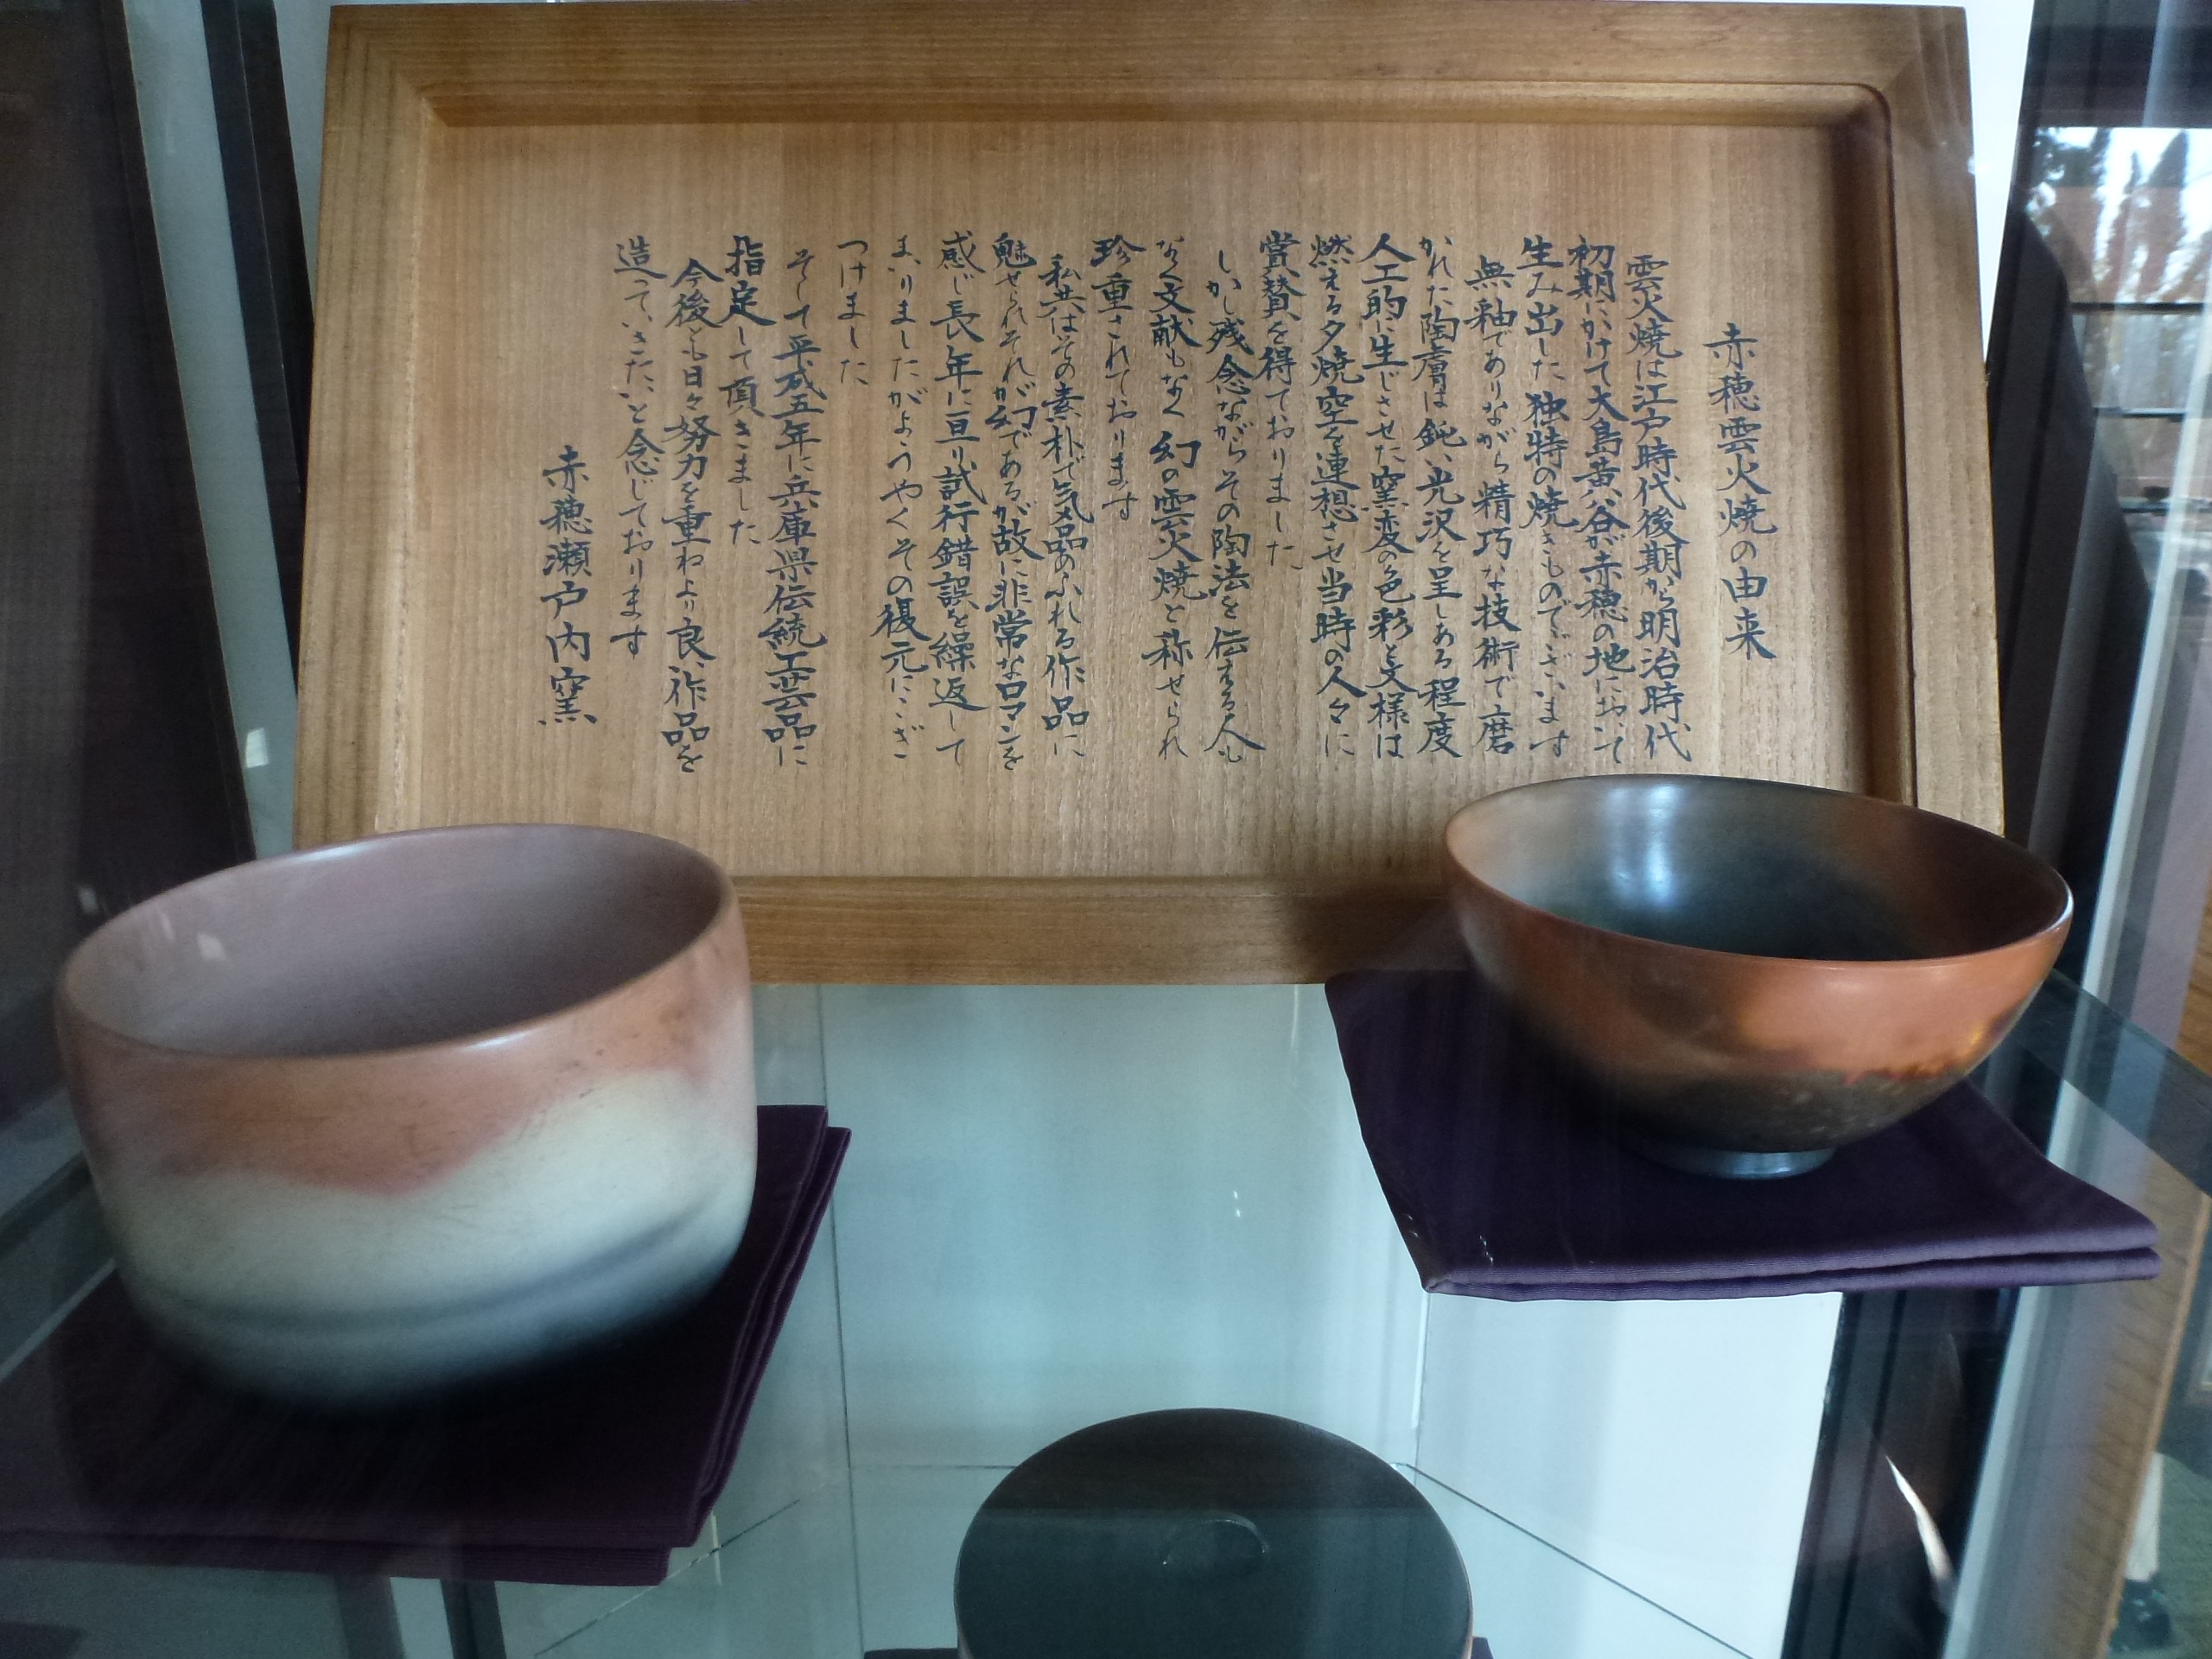 赤穂雲火焼の由来
雲火焼は江戸時代後期から明治時代
初期にかけて大島黄谷が赤穂の地において
生み出した独特の焼きものでございます
無釉でありながら精巧な技術で磨
かれた陶膚は鈍い光沢を呈しある程度
人工的に生じさせた窯変の色彩と文様は
燃える夕焼空を連想させ当時の人々に
賞賛を得ておりました
しかし残念ながらその陶法を伝える人も
なく文献もなく幻の雲火焼と称せられ
珍重されております
私共はその素朴で気品あふれる作品に
魅せられそれが幻であるが故に非常なロマンを
感じ長年に亘り試行錯誤を繰返して
まいりましたがようやくその復元にこぎ
つけました
そして平成五年に兵庫県伝統工芸品に
指定して頂きました
今後とも日々努力を重ねより良い作品を
造っていきたいと念じております
赤穂瀬戸内窯